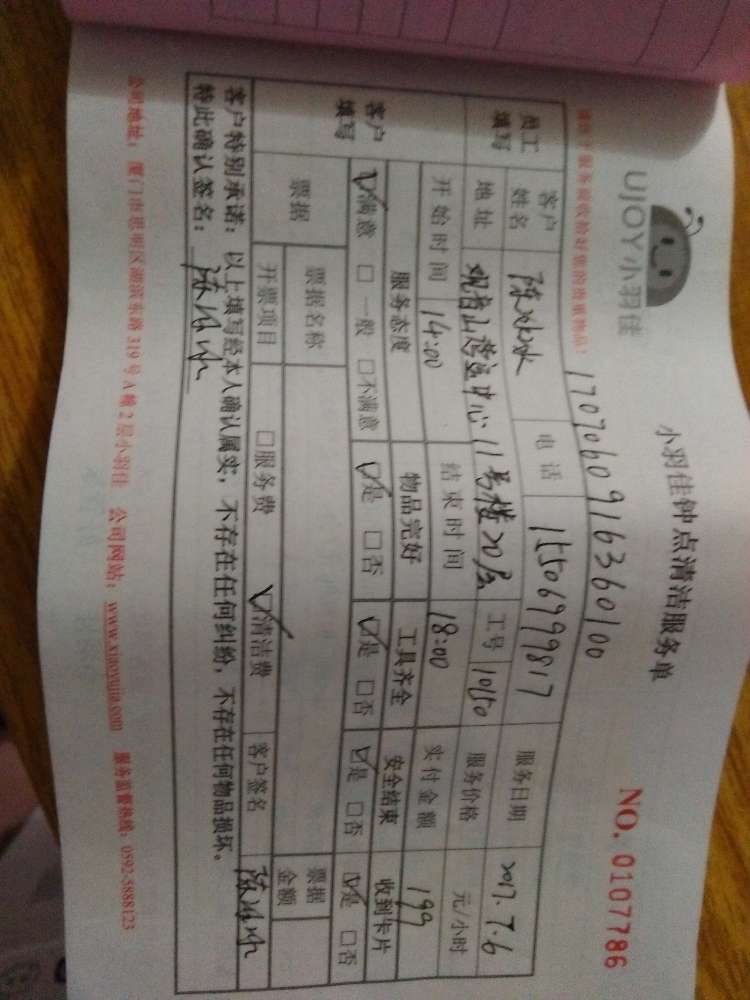 UJOY小羽佳
小羽佳钟点清洁服务单
NO. 0107786
1707060916360100
员工填写 客户姓名 陈冰冰 电话 15506999817 服务日期 2017.7.6
地址 观音山营运中心11号楼20层 工号 10150 服务价格 元/小时
开始时间 14:00 结束时间 18:00 实付金额 199
客户填写 服务态度 物品完好 工具齐全 安全结束 收到卡片
☑满意 □一般 □不满意 ☑是 □否 ☑是 □否 ☑是 □否 ☑是 □否
票据 票据名称 票据金额
开票项目 □服务费 ☑清洁费 客户签名 陈冰冰
客户特别承诺：以上填写经本人确认属实，不存在任何纠纷，不存在任何物品损坏。
特此确认签名：陈冰冰
公司地址：厦门市思明区湖滨东路319号A幢2层小羽佳 公司网站：www.xiaoyujia.com 服务监督热线：0592-5888123